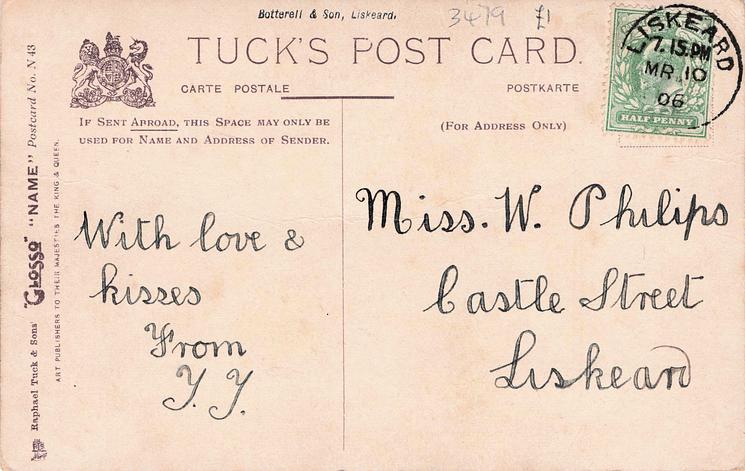 Botterell & Son, Liskeard.
3479 £1
TUCK'S POST CARD.
CARTE POSTALE
POSTKARTE
IF SENT ABROAD, THIS SPACE MAY ONLY BE
USED FOR NAME AND ADDRESS OF SENDER.
(FOR ADDRESS ONLY)
LISKEARD
7.15.PM
MR 10
06
HALF PENNY
Raphael Tuck & Sons' "GLOSSO" "NAME" Postcard No. N 43
ART PUBLISHERS TO THEIR MAJESTIES THE KING & QUEEN.
With love &
kisses
From
Y. Y.
Miss. W. Philips
Castle Street
Liskeard